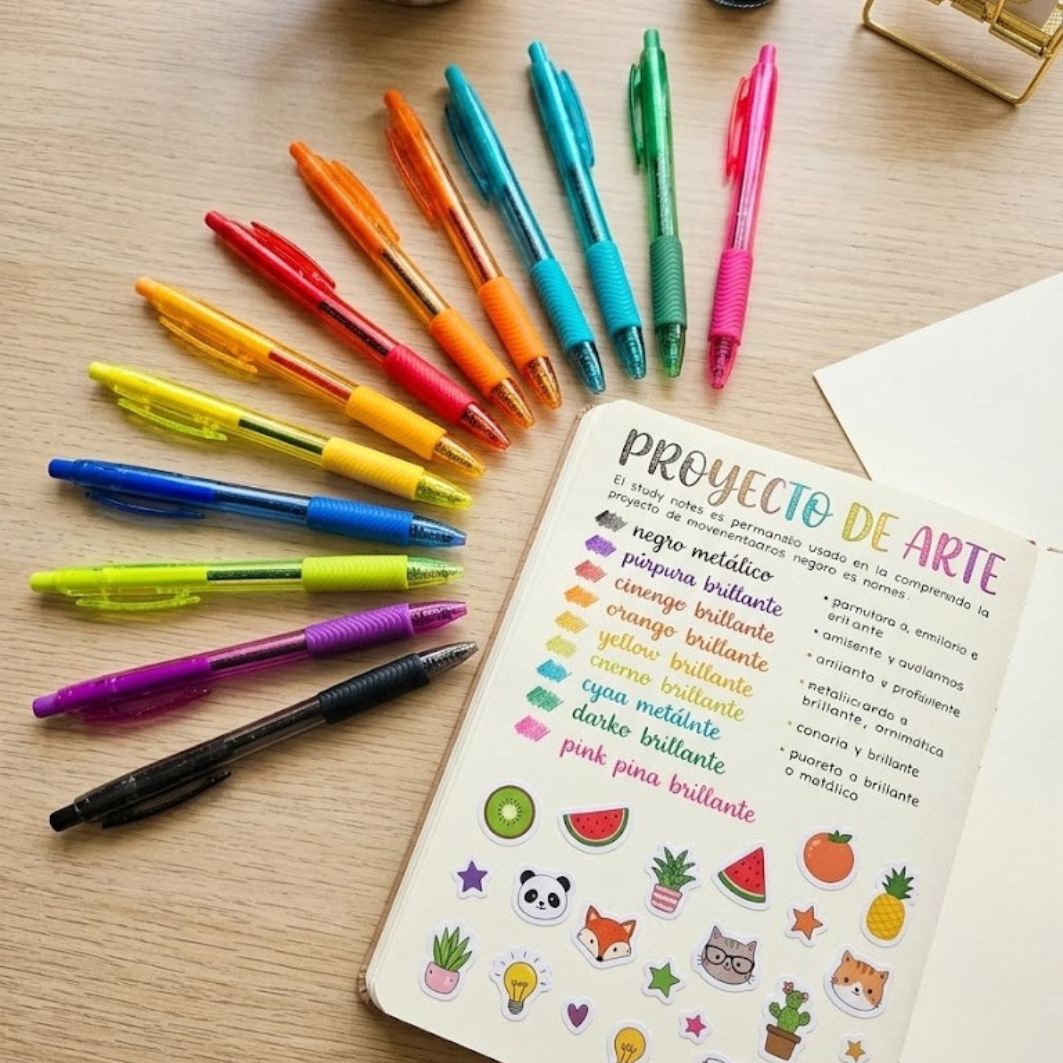 PROYECTO DE ARTE
El study notes es permansбlo usado en la comprenмdo la
proyecto de movenentaaros negoro es nomes.
negro metálico
púrpura brillante
cinengo brillante
orango brillante
yellow brillante
cnerno brillante
cyaa metálnte
darko brillante
pink pina brillante
• parnutora a, ennilario e
erit ante
• amisente y avdlamos
• arriianto e profáviente
• netaliicardo a
brillante, ornimática
• conoria y brillante
• puoreta a brillante
o metdlico